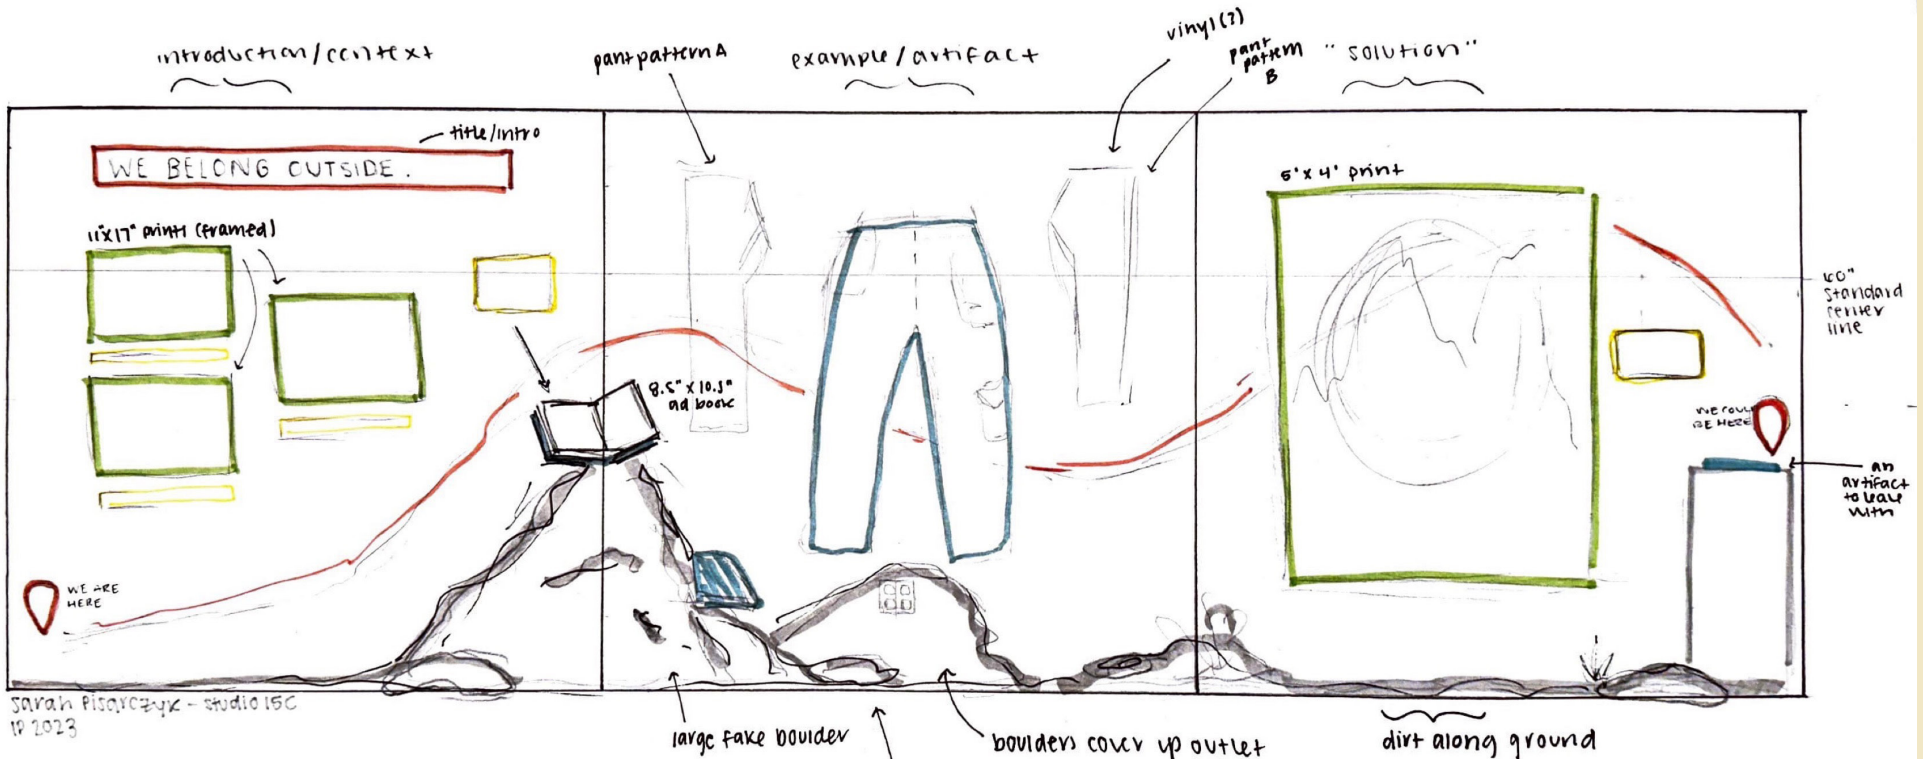 introduction/context
pant pattern A
example/artifact
vinyl(?)
pant
pattern
B
"solution"
title/intro
WE BELONG OUTSIDE.
11"x17" prints (framed)
5'x4' print
60"
standard
center
line
8.5" x 10.5"
ad book
WE COULD
BE HERE
an
artifact
to leave
with
WE ARE
HERE
sarah Pisarczyk - studio 15C
IP 2023
large fake boulder
boulders cover up outlet
dirt along ground